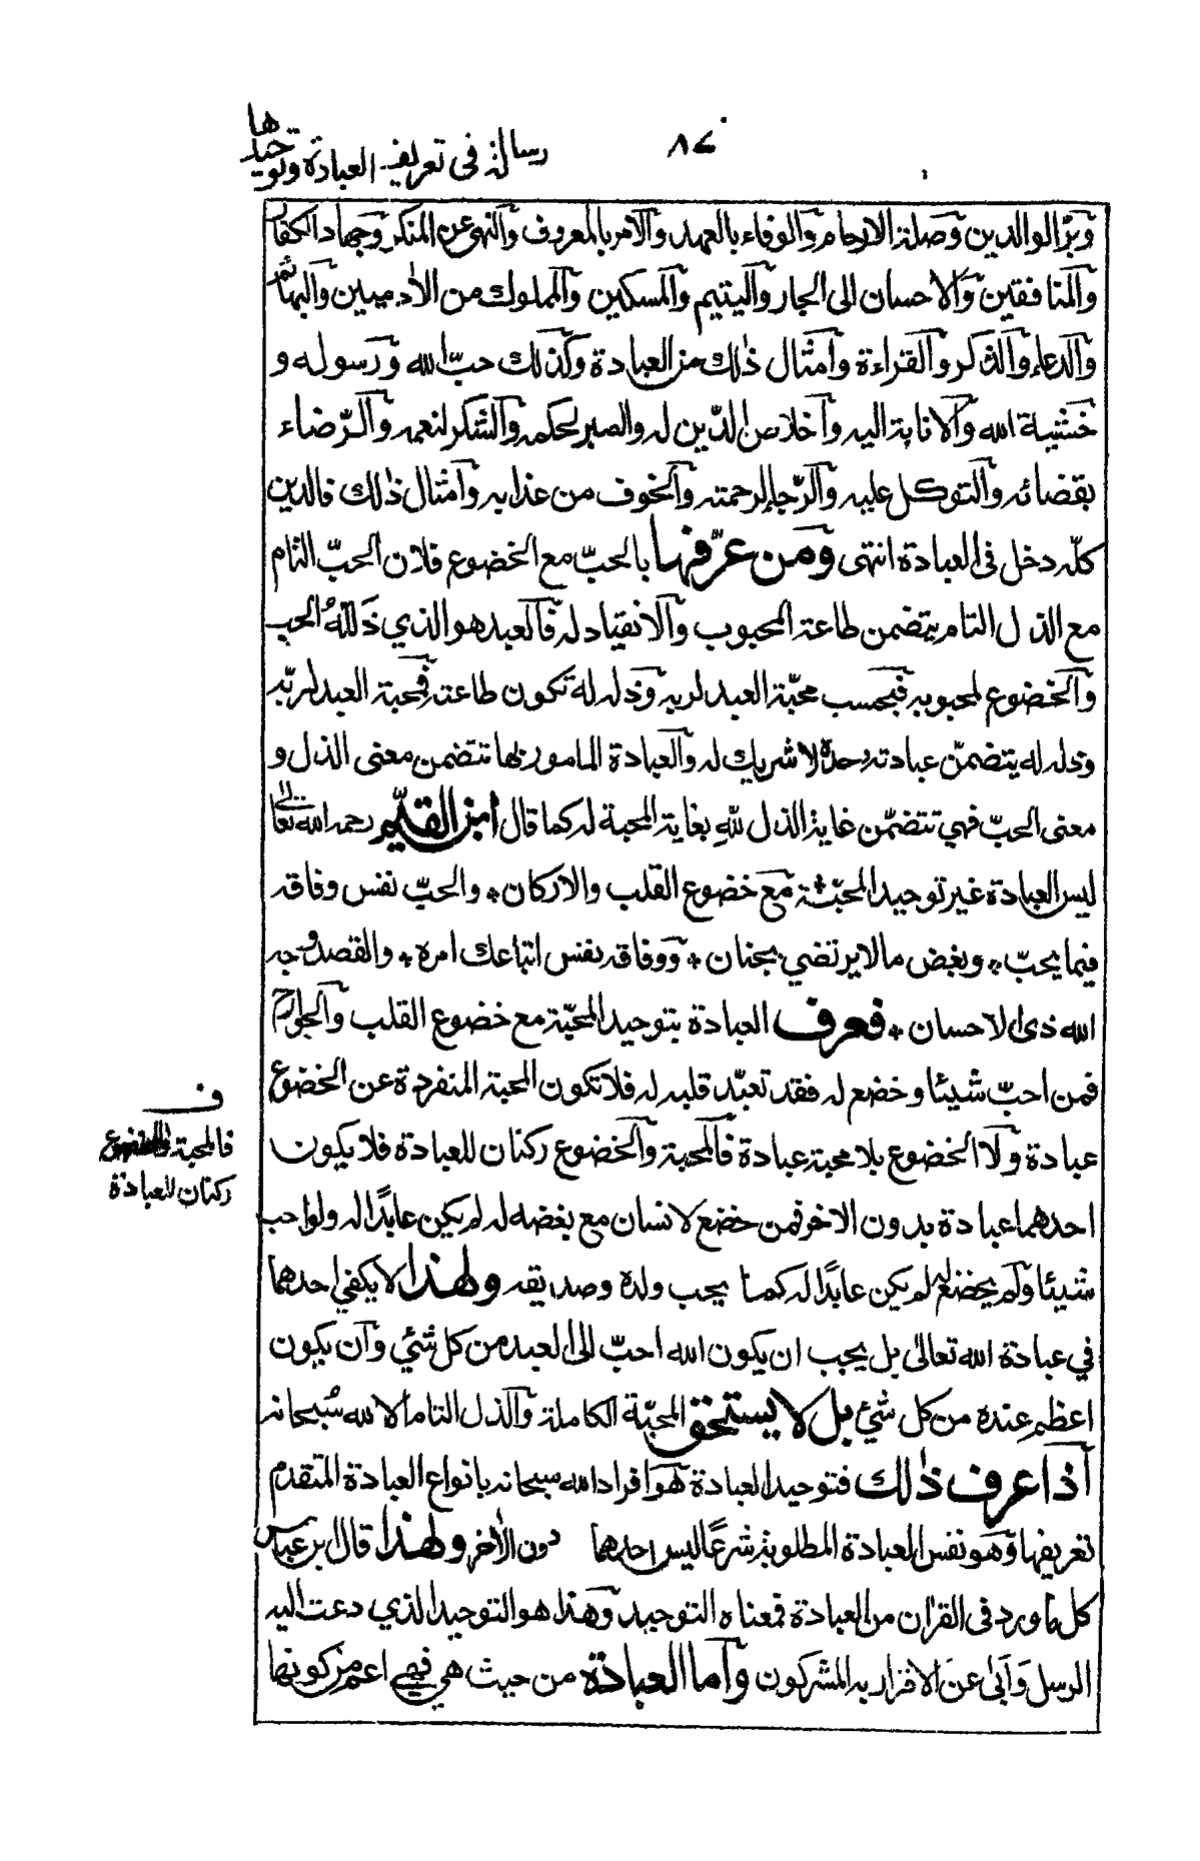 رسالة في تعريف العبادة وتوحيدها
٨٤
وبرّ الوالدين وصلة الارحام والوفاء بالعهد والامر بالمعروف والنهى عن المنكر وجهاد الكفار
والمنافقين والاحسان الى الجار واليتيم والمسكين والمملوك من الآدميين والبهائم
والدعاء والذكر والقراءة وامثال ذلك من العبادة وكذلك حبّ الله ورسوله و
خشية الله والانابة اليه واخلاص الدّين له والصبر لحكمه والشكر لنعمه والرّضاء
بقضائه والتوكل عليه والرّجاء لرحمته والخوف من عذابه وامثال ذلك فالدين
كلّه دخل فى العبادة انتهى ومن عرّفها بالحبّ مع الخضوع فلان الحبّ التام
مع الذل التام يتضمن طاعة المحبوب والانقياد له فالعبد هو الذي ذَلّلهُ الحب
والخضوع لمحبوبه فبحسب محبّة العبد لربه وذله له تكون طاعته فمحبة العبد لربّه
وذله له يتضمّن عبادته وحده لا شريك له والعبادة المامور بها تتضمن معنى الذل و
معنى الحبّ فهي تتضمّن غاية الذل للهِ بغاية المحبة له كما قال ابن القيّم رحمه الله تعالى
ليس العبادة غير توحيد المحبّة مع خضوع القلب والاركان * والحبّ نفس وفاقه
فيما يحبّ * وبغض مالا يرتضي بجنان * ووفاقه نفس اتباعك امره * والقصد وجه
الله ذى الاحسان * فعرف العبادة بتوحيد المحبّة مع خضوع القلب والجوارح
فمن احبّ شيئا وخضع له فقد تعبّد قلبه له فلا تكون المحبة المنفردة عن الخضوع
عبادة ولا الخضوع بلا محبة عبادة فالمحبة والخضوع ركنان للعبادة فلا يكون
احدهما عبادة بدون الاخر فمن خضع لانسان مع بغضه له لم يكن عابدًا له ولو احب
شيئا ولم يخضع له لم يكن عابدًا له كما يحب ولده وصديقه ولهذا لا يكفي احدهما
في عبادة الله تعالى بل يجب ان يكون الله احبّ الى العبد من كل شئي وان يكون
اعظم عِنده من كل شئ بل لا يستحق المحبّة الكاملة والذل التام الا لله سُبحانه
اذا عرف ذلك فتوحيد العبادة هو افراد الله سبحانه بانواع العبادة المتقدم
تعريفها وهو نفس العبادة المطلوبة شرعًا ليس احدهما دون الآخر ولهذا قال ابن عباس
كل ما ورد فى القرآن من العبادة فمعناه التوحيد وهذا هو التوحيد الذي دعت اليه
الرسل وَابى عنَ الاقرار به المشركون واما العبادة من حيث هي فهي اعم من كونها
ف
فالمحبة والخضوع
ركنان للعبادة